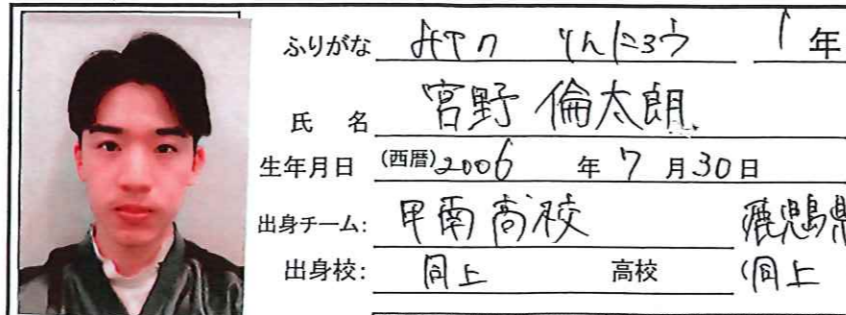 ふりがな みやの りんたろう 1年
氏名 宮野 倫太朗
生年月日 (西暦)2006年7月30日
出身チーム: 甲南高校 鹿児島県
出身校: 同上 高校 (同上